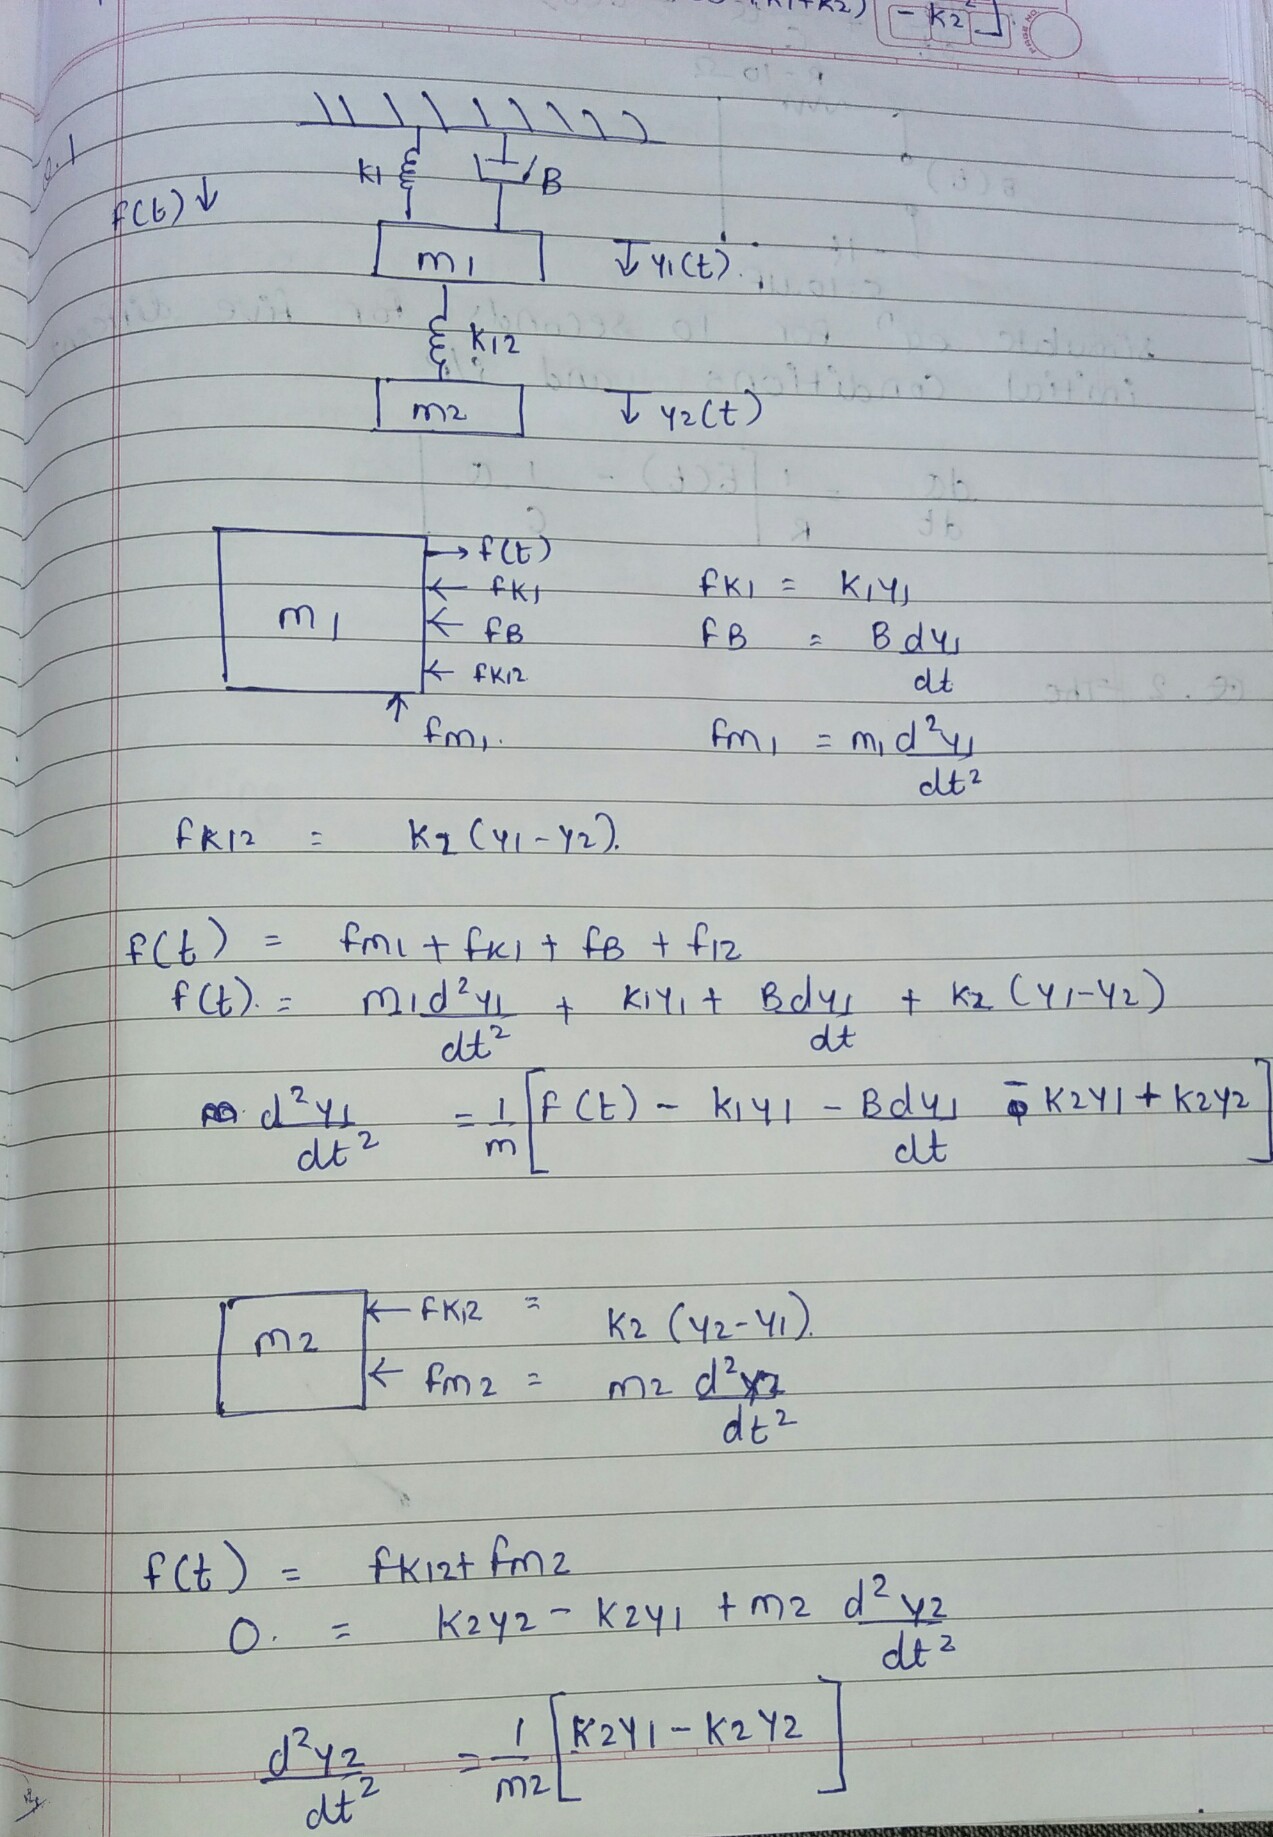 - K2 ]
K1
B
f(t) ↓
m1
↓ y1(t).
K12
m2
↓ y2(t)
→ f(t)
← fK1
fK1 = K1y1
m1
← fB
fB = B dy1/dt
← fK12
↑ fm1.
fm1 = m1 d²y1/dt²
fK12 = K2 (y1-y2).
f(t) = fm1 + fK1 + fB + f12
f(t). = m1 d²y1/dt² + K1y1 + B dy1/dt + K2 (y1-y2)
d²y1/dt² = 1/m [f(t) - K1y1 - B dy1/dt - K2y1 + K2y2]
m2
← fK12 = K2 (y2-y1).
← fm2 = m2 d²y2/dt²
f(t) = fK12 + fm2
0. = K2y2 - K2y1 + m2 d²y2/dt²
d²y2/dt² = 1/m2 [K2y1 - K2y2]